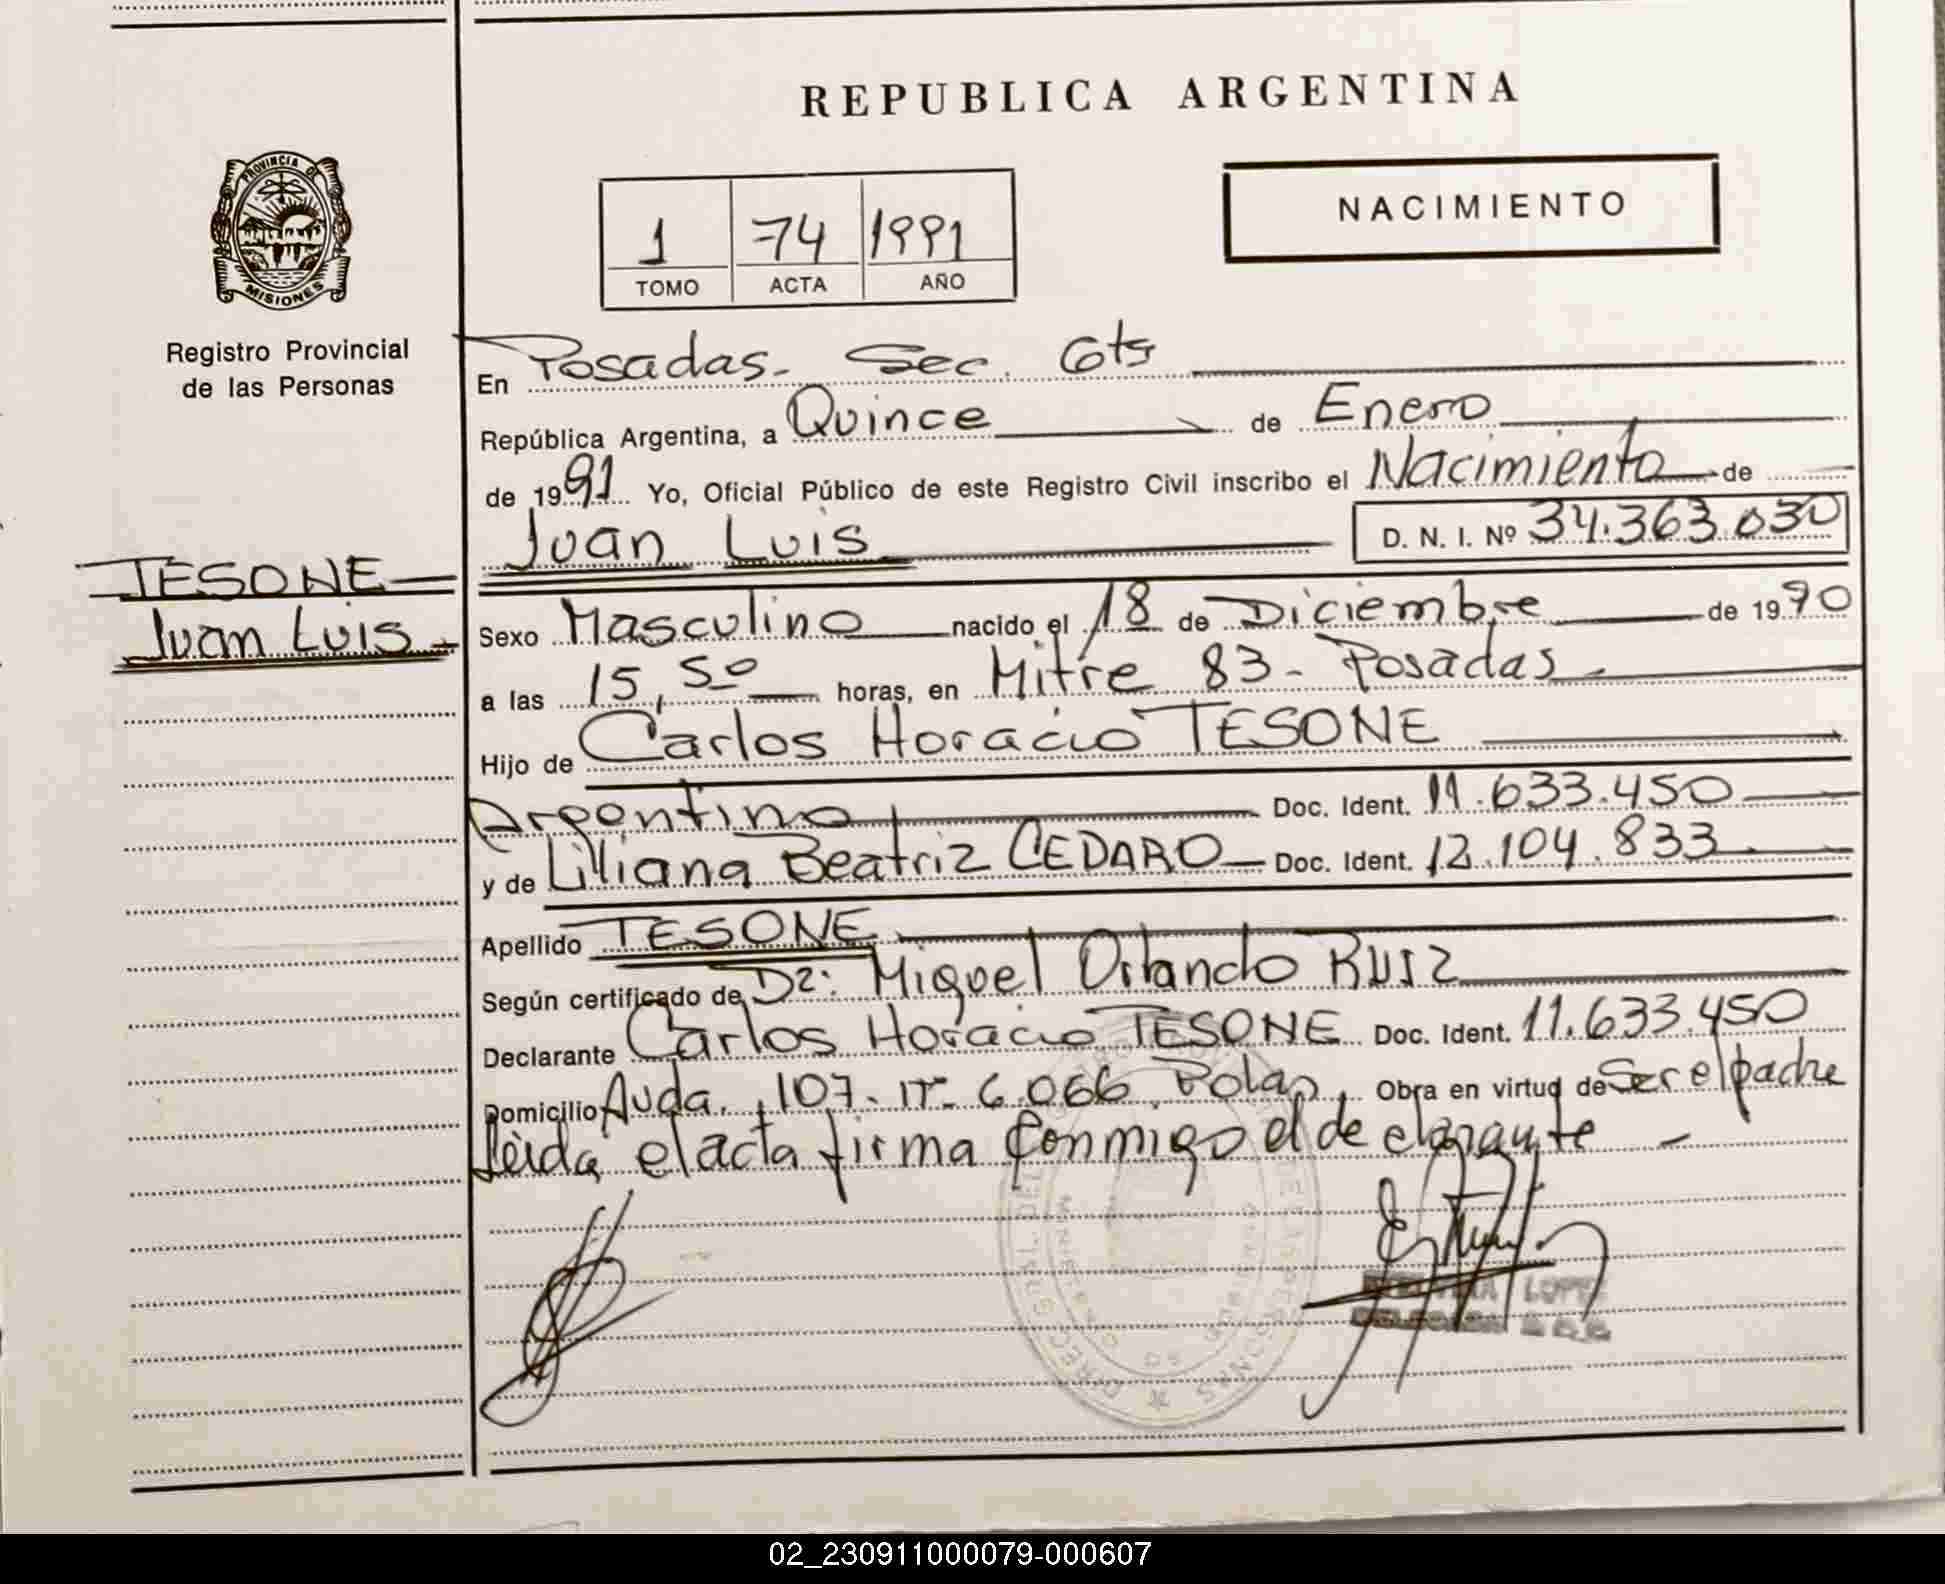 REPUBLICA ARGENTINA
PROVINCIA DE
MISIONES
Registro Provincial
de las Personas
NACIMIENTO
1 74 1991
TOMO ACTA AÑO
En Posadas. Sec. 6ta
República Argentina, a Quince de Enero
de 1991 Yo, Oficial Público de este Registro Civil inscribo el Nacimiento de
Juan Luis D. N. I. Nº 34.363.030
TESONE
Juan Luis
Sexo Masculino nacido el 18 de Diciembre de 1990
a las 15,50 horas, en Mitre 83 - Posadas
Hijo de Carlos Horacio TESONE
Argentino Doc. Ident. 11.633.450
y de Liliana Beatriz CEDARO Doc. Ident. 12.104.833
Apellido TESONE
Según certificado de Dr: Miguel Orlando RUIZ
Declarante Carlos Horacio TESONE Doc. Ident. 11.633.450
Domicilio Avda. 107 - Nº 6.066 Obra en virtud de Ser el padre
Leida el acta firma conmigo el de clarante -
LOPE
02_230911000079-000607